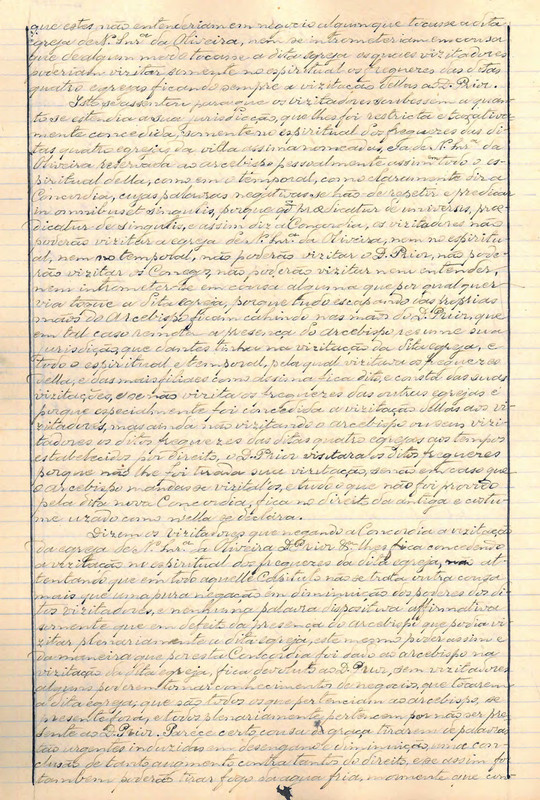 que estes não entenderiam em negocio algum que tocasse a dita
egreja de N. Snrª da Oliveira, nem se intrometeriam em cousa
que de algum modo tocasse a dita egreja os quaes vizitadores
poderiam vizitar somente no espiritual os freguezes das ditas
quatro egrejas ficando sempre a vizitação dellas ao D. Prior.
Isto se assentou para que os vizitadores soubessem a quan-
to se estendia a sua jurisdicção, que lhes foi restricta e taxativa-
mente concedida, somente no espiritual dos freguezes das di-
tas quatro egrejas da villa assima nomeadas, e a de N. Snrª da
Oliveira reservada ao arcebispo pessoalmente assim todo o es-
piritual della, como em o temporal, como claramente diz a
Concordia, cujas palavras negativas se hão de repetir e predicar
in omnibus et singulis, porque qd prœdicatur de universis, prœ-
dicatur de singulis, e assim diz a Concordia, os vizitadores não
poderão vizitar a egreja de N. Snrª da Oliveira, nem no espiritu-
al, nem no temporal, não poderão vizitar o D. Prior, não pode-
rão vizitar os Conegos, não poderão vizitar nem entender,
nem intrometer-se em cousa alguma que por qualquer
via toque a dita egreja, porque tudo escapando das proprias
mãos do Arcebispo ficam cahindo nas mãos do D. Prior, que
em tal caso remota a presença do arcebispo resume sua
jurisdição, que dantes tinha na vizitação da dita egreja, e
todo o espiritual e temporal, pela qual vizitava os freguezes
della, e das mais filiaes como de sima fica dito, e consta das suas
vizitações, e se não vizita os freguezes das outras egrejas é
porque especialmente foi concedida a vizitação dellas aos vi-
zitadores, mas ainda não vizitando o arcebispo ou seus vizi-
tadores os ditos freguezes das ditas quatro egrejas aos tempos
estabelecidos por direito, o D. Prior visitará os ditos freguezes
porque não lhe foi tirada sua vizitação, senão em caso que
o arcebispo mandasse vizital-os, e tudo o que não foi provido
pela dita nova Concordia, fica no direito da antiga e costu-
me uzado como nella se declara.
Diremos vizitadores que negando a Concordia a visitação
da egreja de N. Snrª da Oliveira D. Prior lhes fica concedendo
a vizitação no espiritual dos freguezes da dita egreja, não at-
tentando que em todo aquelle Capitulo não se trata outra cousa
mais que uma pura negação em diminuição dos poderes dos di-
tos vizitadores, e nenhuma palavra dispositiva affirmativa
somente que em defeito da presença do arcebispo que podia vi-
zitar plenariamente a dita egreja, este mesmo poder assim e
da maneira que por esta Concordia foi dado ao arcebispo na
vizitação da dita egreja, fica devoluto ao D. Prior, sem vizitadores
alguns poderem tomar conhecimento de negocios, que tocarem
a dita egreja, que são todos os que pertenciam ao arcebispo, se
presente fora, e todos plenariamente pertencem por não ser pre-
sente ao D. Prior. Parece certo cousa de graça tirarem de palavras
tão urgentes induzidas em desengano e diminuição, uma con-
clusão de tanto augmento contra tantos do direito, e se assim fos
tambem poderão tirar fogo da agua fria, mormente que con-